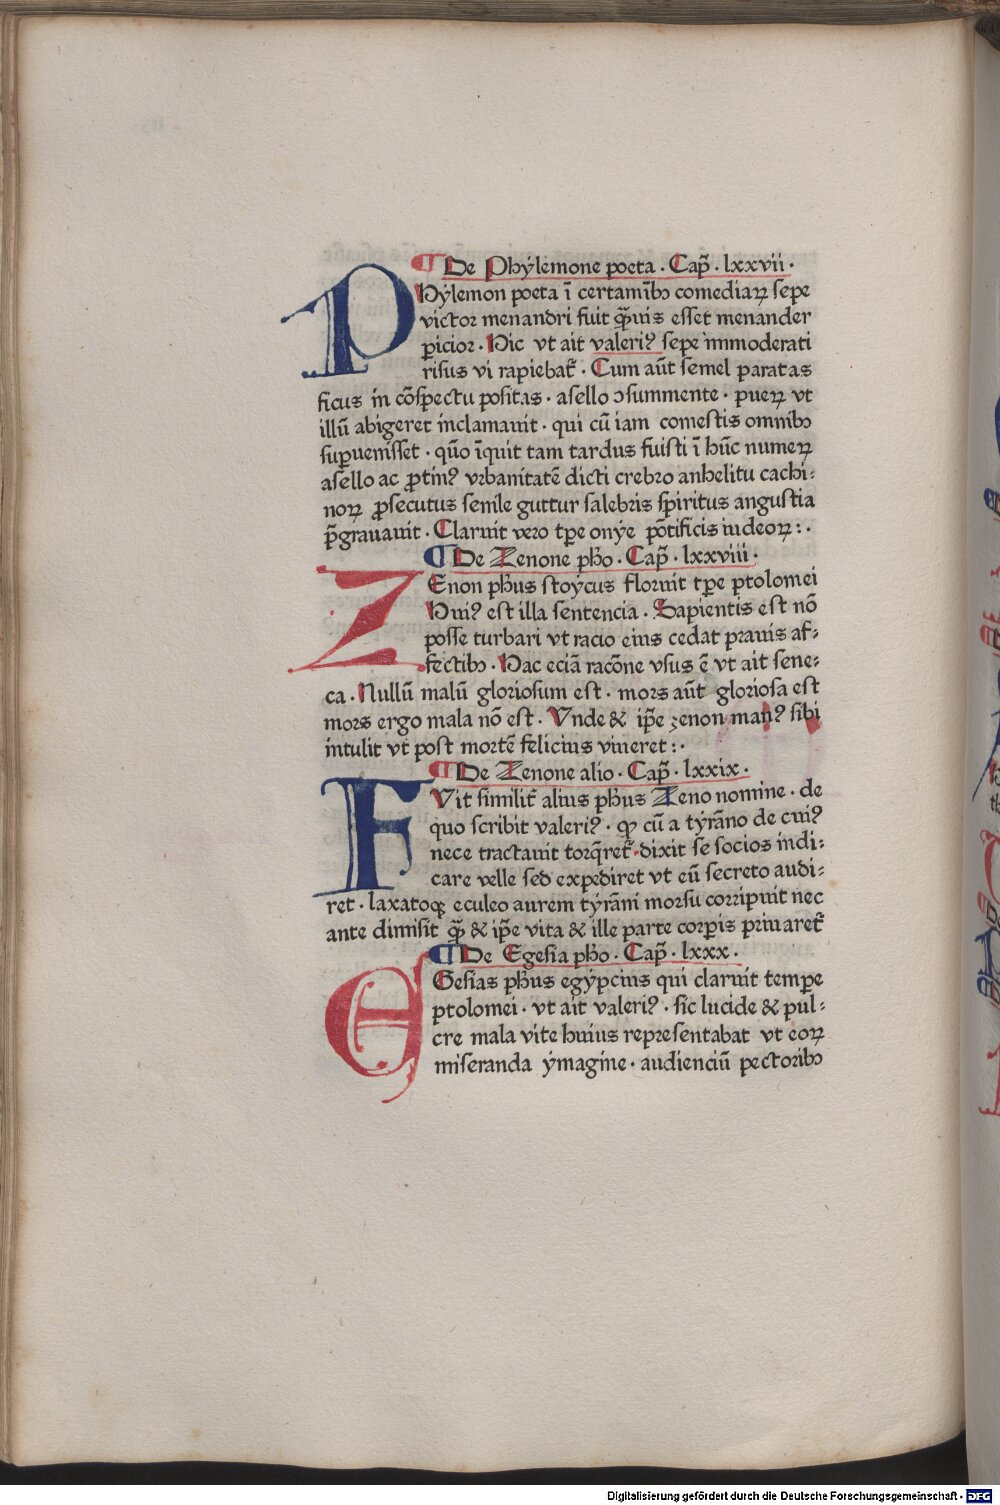 ¶ De Phẏlemone poeta · Cap̃ · lxxvii ·
PHẏlemon poeta ĩ certamĩbꝫ comediaꝝ sepe
victor menandri fuit q̃uis esset menander
ꝑicior · Hic vt ait valeriꝰ sepe immoderati
risus vi rapiebat᷑ · Cum aũt semel paratas
ficus in cõspectu positas · asello ɔsummente · pueꝝ vt
illũ abigeret inclamauit · qui cũ iam comestis omnibꝫ
suꝑuenisset · quõ ĩquit tam tardus fuisti ĩ hũc numeꝝ
asello ac ꝓtinꝰ vrbanitatẽ dicti crebro anhelitu cachi:
noꝝ ꝓsecutus senile guttur salebris spiritus angustia
p̃grauauit · Claruit vero tꝑe onẏe põtificis iudeoꝝ : ·
¶ De Zenone pho · Cap̃ · lxxviii ·
ZEnon phus stoẏcus floruit tꝑe ptolomei
Huiꝰ est illa sentencia · Sapientis est nõ
posse turbari vt racio eius cedat prauis af:
fectibꝫ · Hac eciã racõne vsus ẽ vt ait sene:
ca · Nullũ malũ gloriosum est · mors aũt gloriosa est
mors ergo mala nõ est · Vnde & ip̃e zenon manꝰ sibi
intulit vt post mortẽ felicius viueret : ·
¶ De Zenone alio · Cap̃ · lxxix ·
FVit similit᷑ alius phus Zeno nomine · de
quo scribit valeriꝰ · ꝙ cũ a tẏrãno de cuiꝰ
nece tractauit torq̃ret᷑ · dixit se socios indi:
care velle sed expediret vt eũ secreto audi:
ret · laxatoqꝫ eculeo aurem tẏrãni morsu corripuit nec
ante dimisit q̃ & ip̃e vita & ille parte corꝑis priuaret᷑
¶ De Egesia pho · Cap̃ · lxxx ·
EGesias phus egẏpcius qui claruit temꝑe
ptolomei · vt ait valeriꝰ · sic lucide & pul:
cre mala vite huius representabat vt eoꝝ
miseranda ẏmagine · audienciũ pectoribꝫ
Digitalisierung gefördert durch die Deutsche Forschungsgemeinschaft - DFG